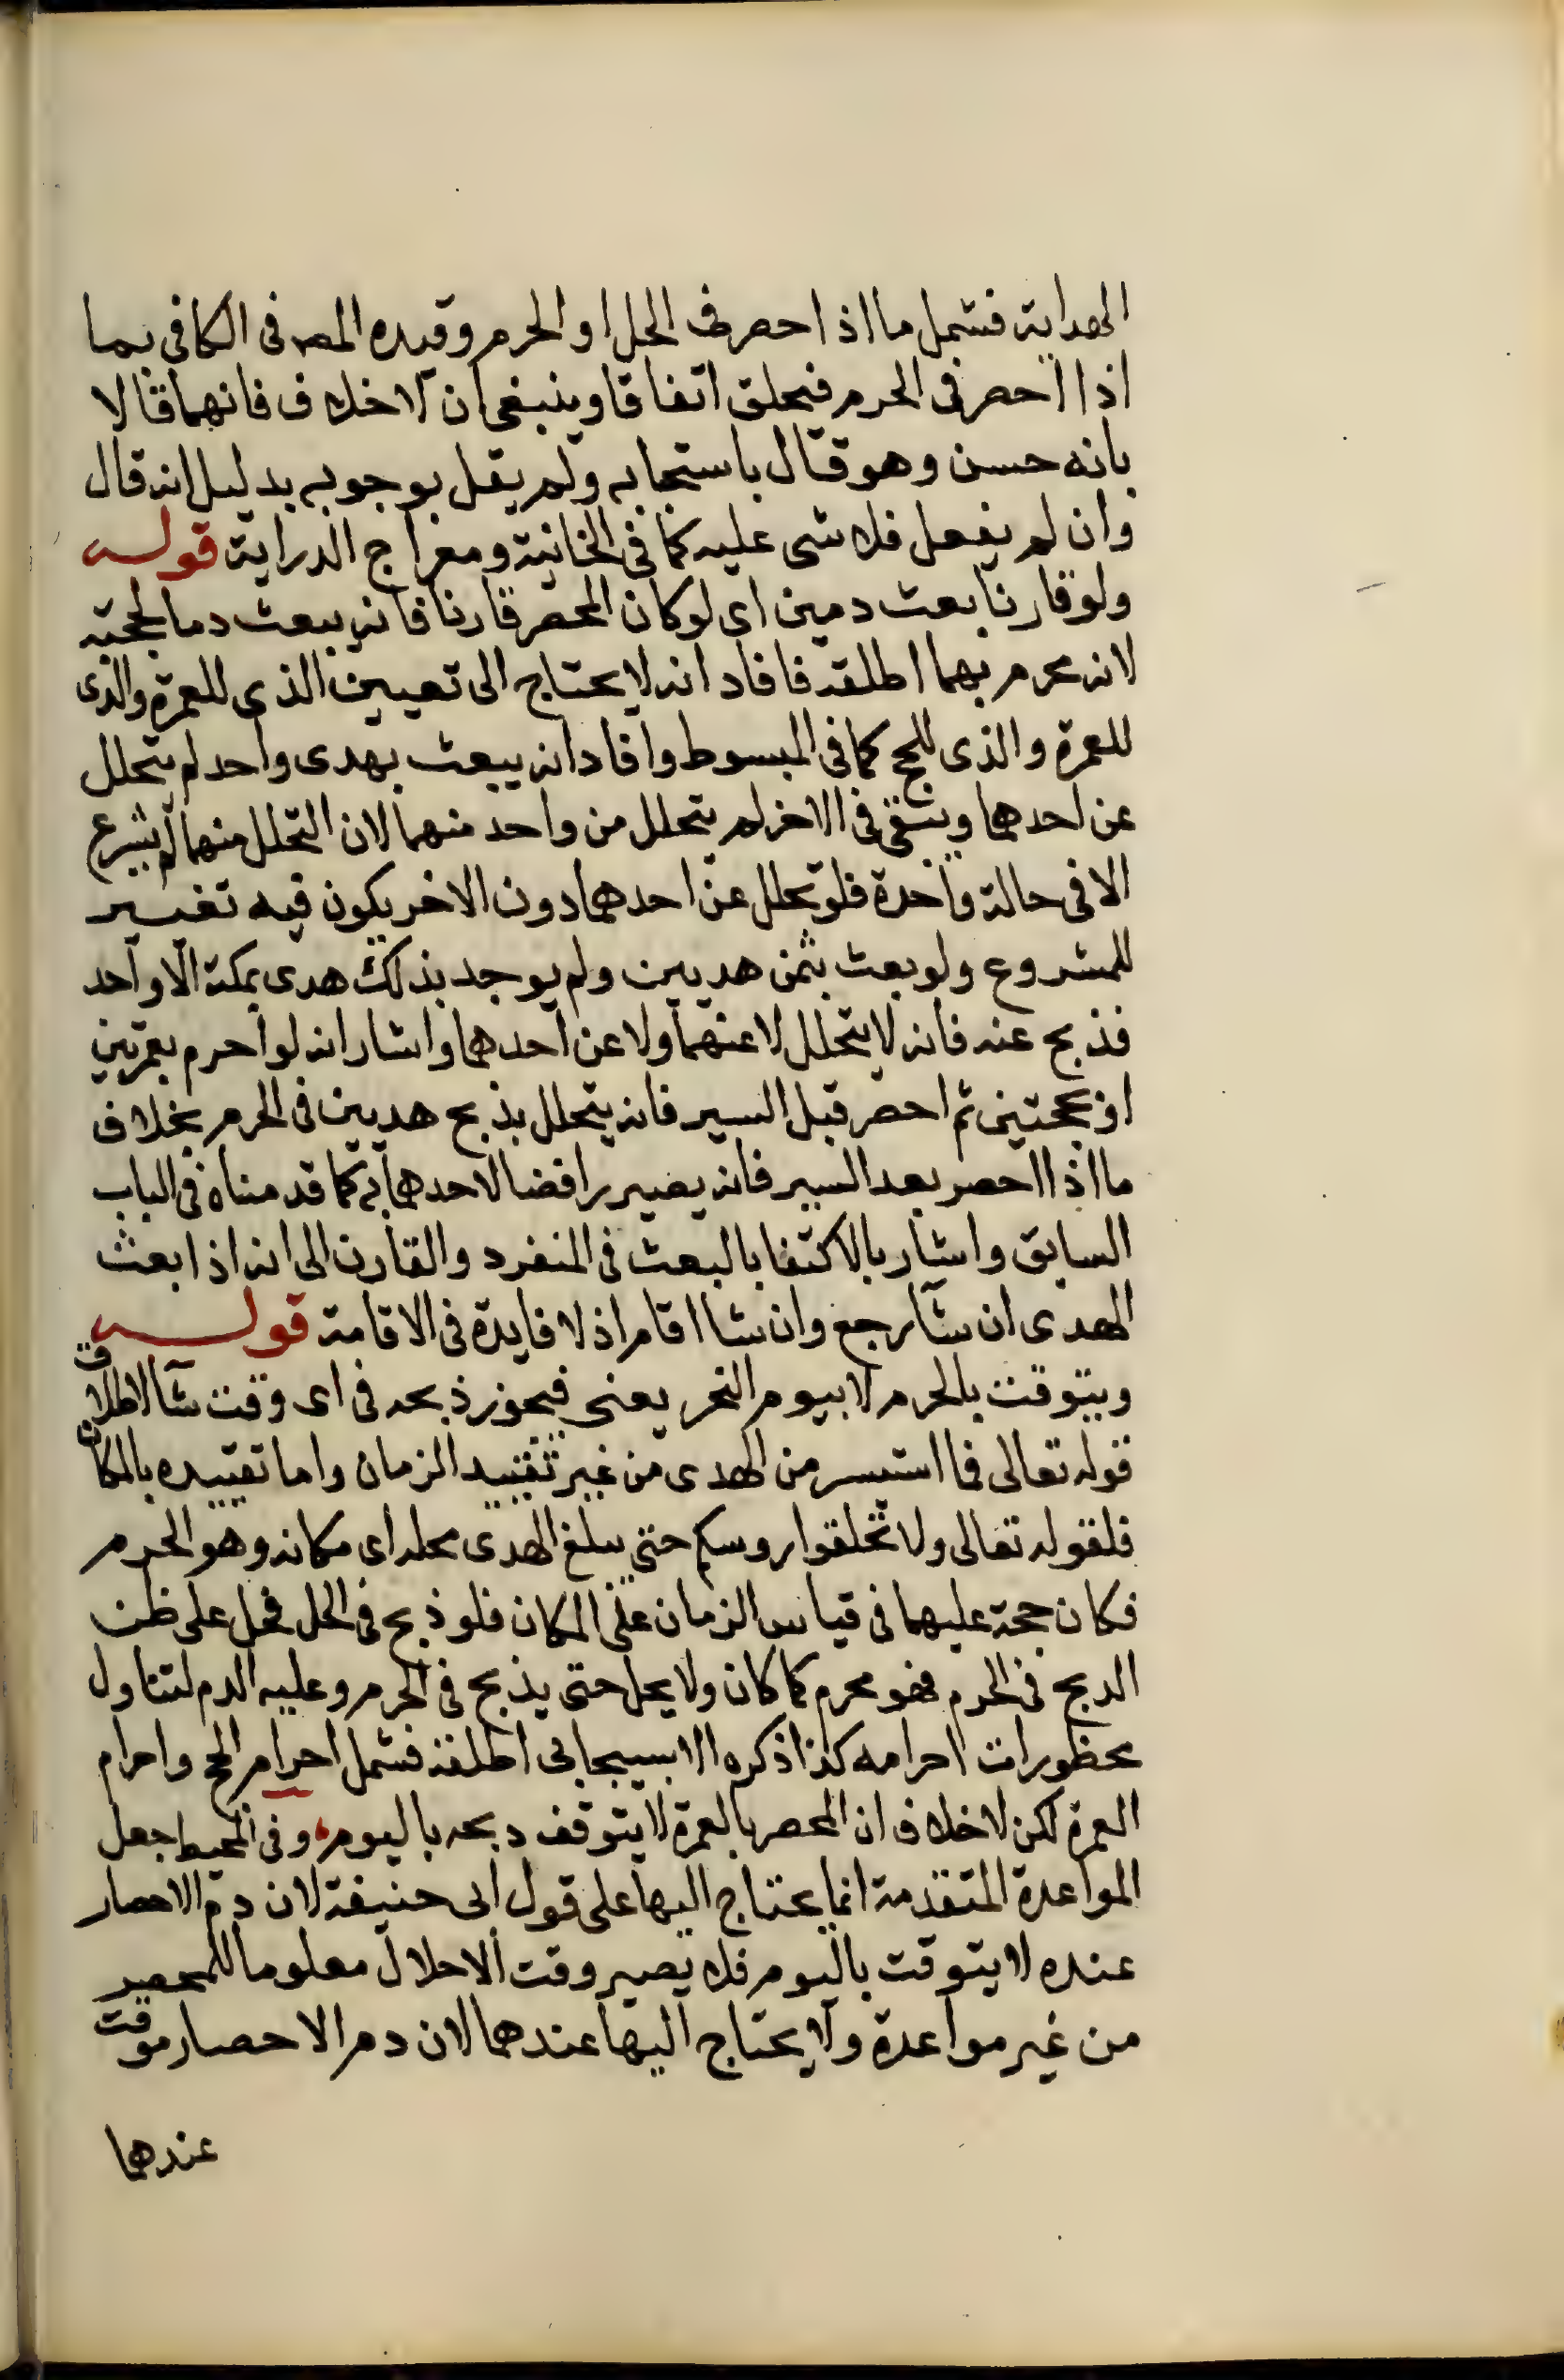 الهداية فشمل ما اذا احصر في الحل او الحرم وقيده المصه في الكافي بما
اذا احصر في الحرم فيحلق اتفاقا وينبغي ان لا خلاف فانهما قالا
بانه حسن وهو قال باستحبابه ولم يقل بوجوبه بدليل انه قال
وان لم يفعل فلا شى عليه كما في الخانية ومعراج الدراية قوله
ولو قارنا بعث دمين اى لو كان المحصر قارنا فانه يبعث دما لحجته
لانه محرم بهما اطلقه فافاد انه لا يحتاج الى تعيين الذى للعمرة والذى
للعمرة والذى للحج كما في المبسوط وافاد انه يبعث بهدى واحد لم يتحلل
عن احدهما ويبقى في الاخر لم يتحلل من واحد منهما لان التحلل منهما لم يشرع
الا في حالة واحدة فلو تحلل عن احدهما دون الاخر يكون فيه تغيير
للمشروع ولو بعث بثمن هديين ولم يوجد بذلك هدى بمكة الا واحد
فذبح عنه فانه لا يتحلل لا عنهما ولا عن احدهما واشار انه لو احرم بعمرتين
او بحجتين ثم احصر قبل السير فانه يتحلل بذبح هديين في الحرم بخلاف
ما اذا احصر بعد السير فانه يصير رافضا لاحدهما به كما قدمناه في الباب
السابق واشار بالاكتفا بالبعث في المنفرد والقارن الى انه اذا بعث
الهدى ان شآ رجع وان شا اقام اذ لا فايدة في الاقامة قوله
ويتوقت بالحرم لا بيوم النحر يعنى فيجوز ذبحه في اى وقت شآ لاطلاق
قوله تعالى فما استيسر من الهدى من غير تقييد الزمان واما تقييده بالمكان
فلقوله تعالى ولا تحلقوا روسكم حتى يبلغ الهدى محله اى مكانه وهو الحرم
فكان حجة عليهما في قياس الزمان على المكان فلو ذبح في الحل فحل على ظن
الدبح في الحرم فهو محرم كما كان ولا يحل حتى يذبح في الحرم وعليه الدم لتناول
محظورات احرامه كذا ذكره الاسبيجابى اطلقه فشمل احرام الحج واحرام
العمرة لكن لا خلاف ان المحصر بالعمرة لا يتوقف دبحه باليوم وفي المحيط جعل
المواعدة المتقدمة انما يحتاج اليها على قول ابى حنيفة لان دم الاحصار
عنده لا يتوقت باليوم فلا يصير وقت الاحلال معلوما للمحصر
من غير مواعدة ولا يحتاج اليها عندهما لان دم الاحصار موقت
عندهما